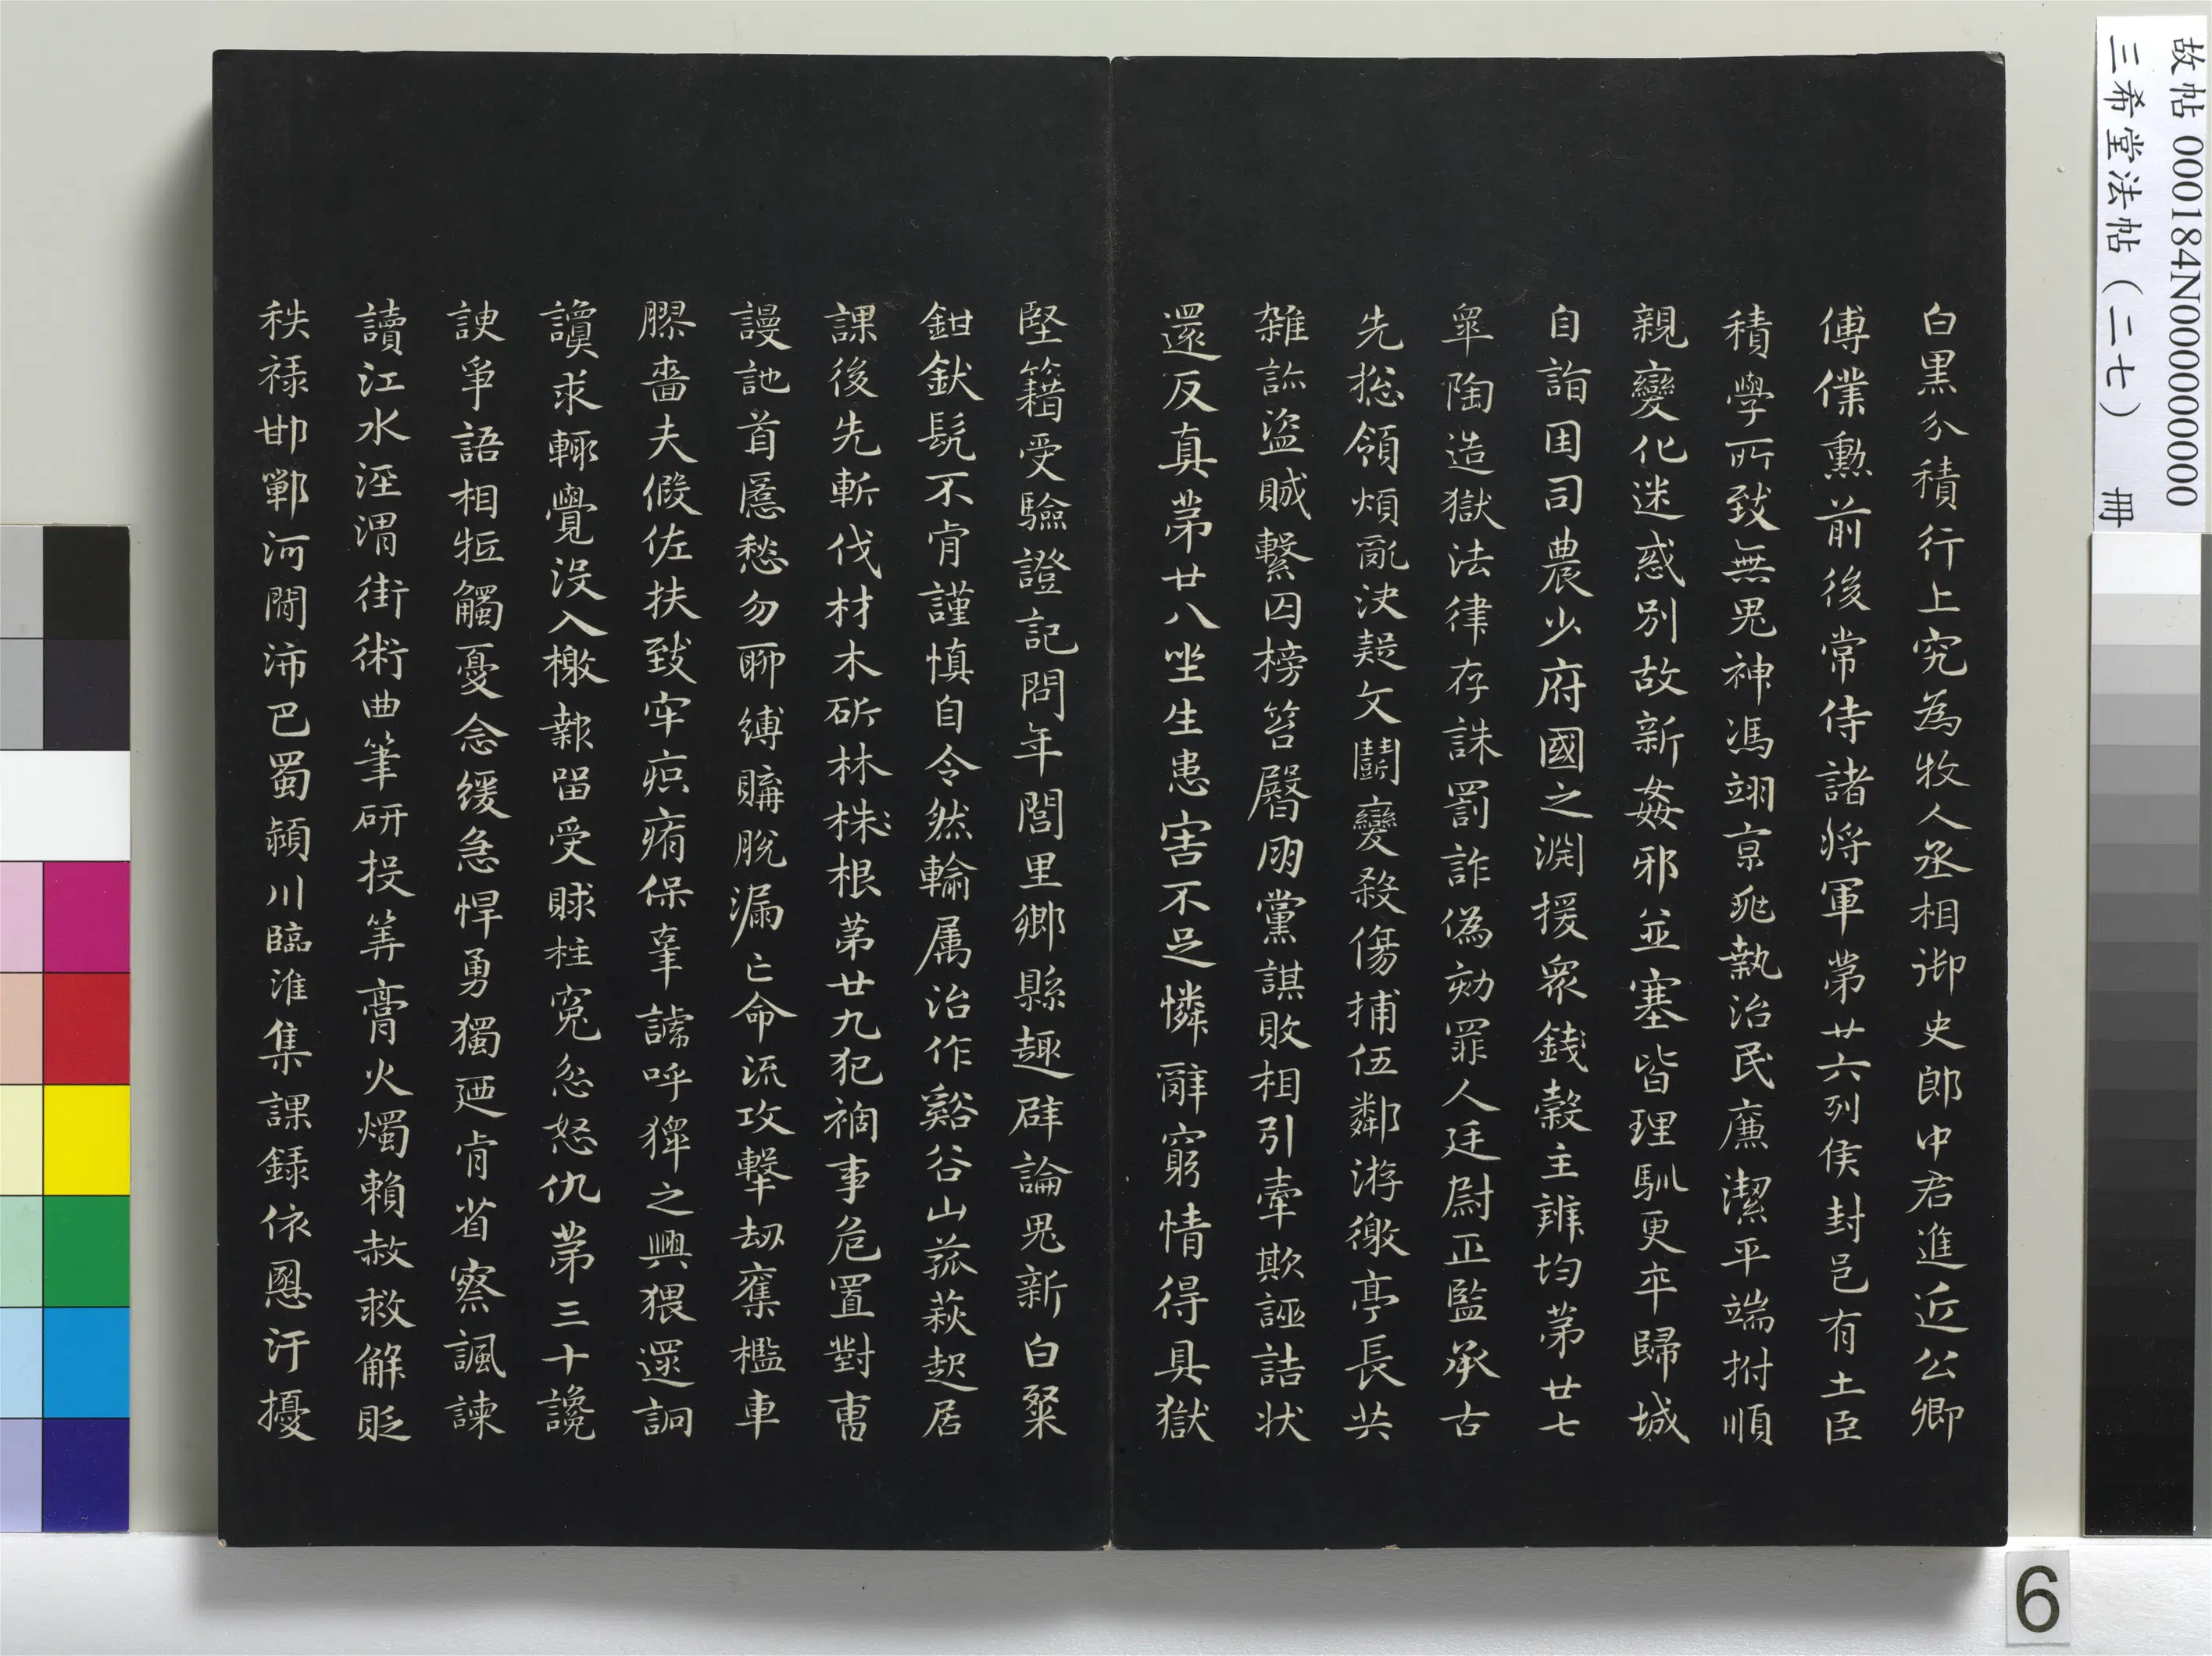 故帖 000184N000000000
三希堂法帖（二七） 冊
白黒分積行上究為牧人丞相御史郎中君進近公卿
傅僕勲前後常侍諸将軍苐廿六列侯封邑有土臣
積學所致無鬼神馮翊亰兆執治民廉潔平端拊順
親變化迷惑別故新姦邪並塞皆理馴更卒歸城
自詣因司農少府國之淵援衆錢穀主辦均苐廿七
皐陶造獄法律存誅罰詐偽劾罪人廷尉正監承古
先捴領煩亂決疑文鬪變殺傷捕伍鄰游徼亭長共
雜訴盗賊繫囚榜笞臋朋黨謀敗相引牽欺誣詰状
還反真苐廿八坐生患害不足憐辭窮情得具獄
堅籍受驗證記問年閭里鄉縣趣辟論鬼新白粲
鉗釱髡不肯謹慎自令然輸属治作谿谷山菰萩起居
課後先斬伐材木斫林株根苐廿九犯禍事危置對曹
謾訑首匿愁勿聊縛購脱漏亡命流攻撃劫奪檻車
膠嗇夫假佐扶致牢疻痏保辜謕呼獋之興猥還詗
讀求輒覺没入檄報留受賕枉冤忿怒仇苐三十讒
諛爭語相牴觸憂念緩急悍勇獨廼肯省察諷諫
讀江水涇渭街術曲筆研投筭膏火燭賴赦救解貶
秩禄邯鄲河閒沛巴蜀潁川臨淮集課録依恩汙擾
6